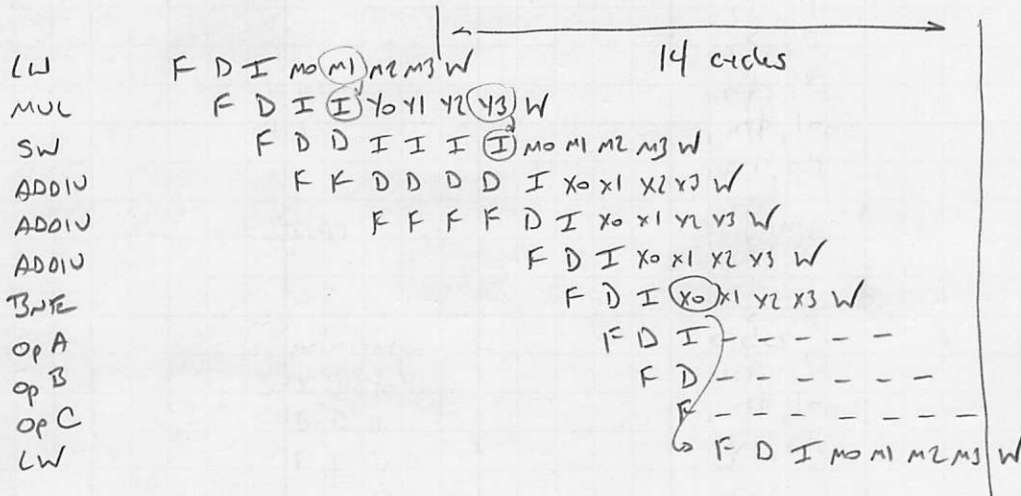 14 cycles
LW F D I M0 M1 M2 M3 W
MUL F D I I Y0 Y1 Y2 Y3 W
SW F D D I I I I M0 M1 M2 M3 W
ADDIU F F D D D D I X0 X1 X2 X3 W
ADDIU F F F F D I X0 X1 X2 X3 W
ADDIU F D I X0 X1 X2 X3 W
BNE F D I X0 X1 X2 X3 W
OpA F D I - - - - -
OpB F D - - - - - -
OpC F - - - - - - -
LW F D I M0 M1 M2 M3 W